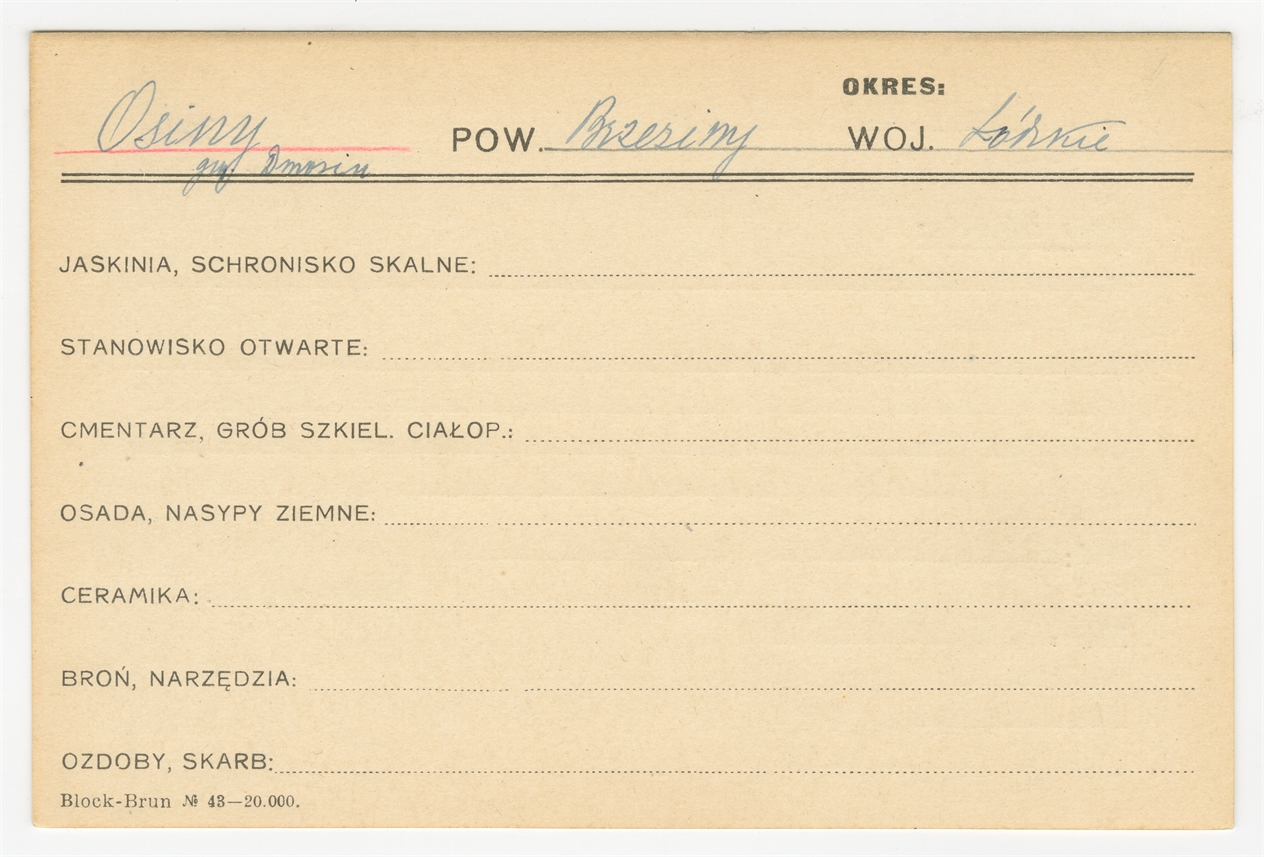 OKRES:
Osiny POW. Brzeziny WOJ. Łódzkie
gm. Dmosin
JASKINIA, SCHRONISKO SKALNE:
STANOWISKO OTWARTE:
CMENTARZ, GRÓB SZKIEL. CIAŁOP.:
OSADA, NASYPY ZIEMNE:
CERAMIKA:
BROŃ, NARZĘDZIA:
OZDOBY, SKARB:
Block-Brun № 43—20.000.